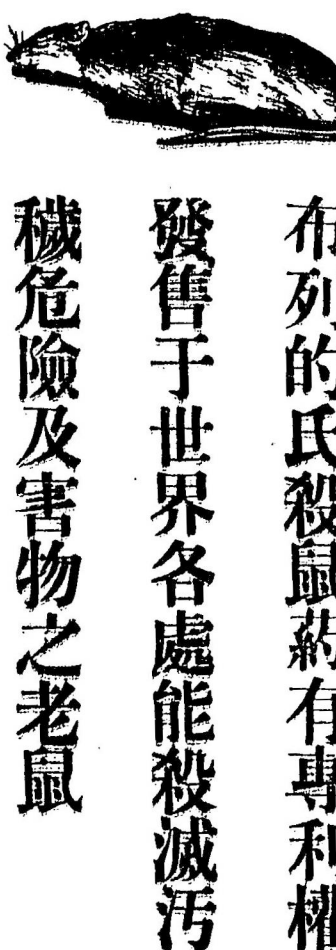 布列的氏殺鼠葯有專利權
發售于世界各處能殺滅污
穢危險及害物之老鼠